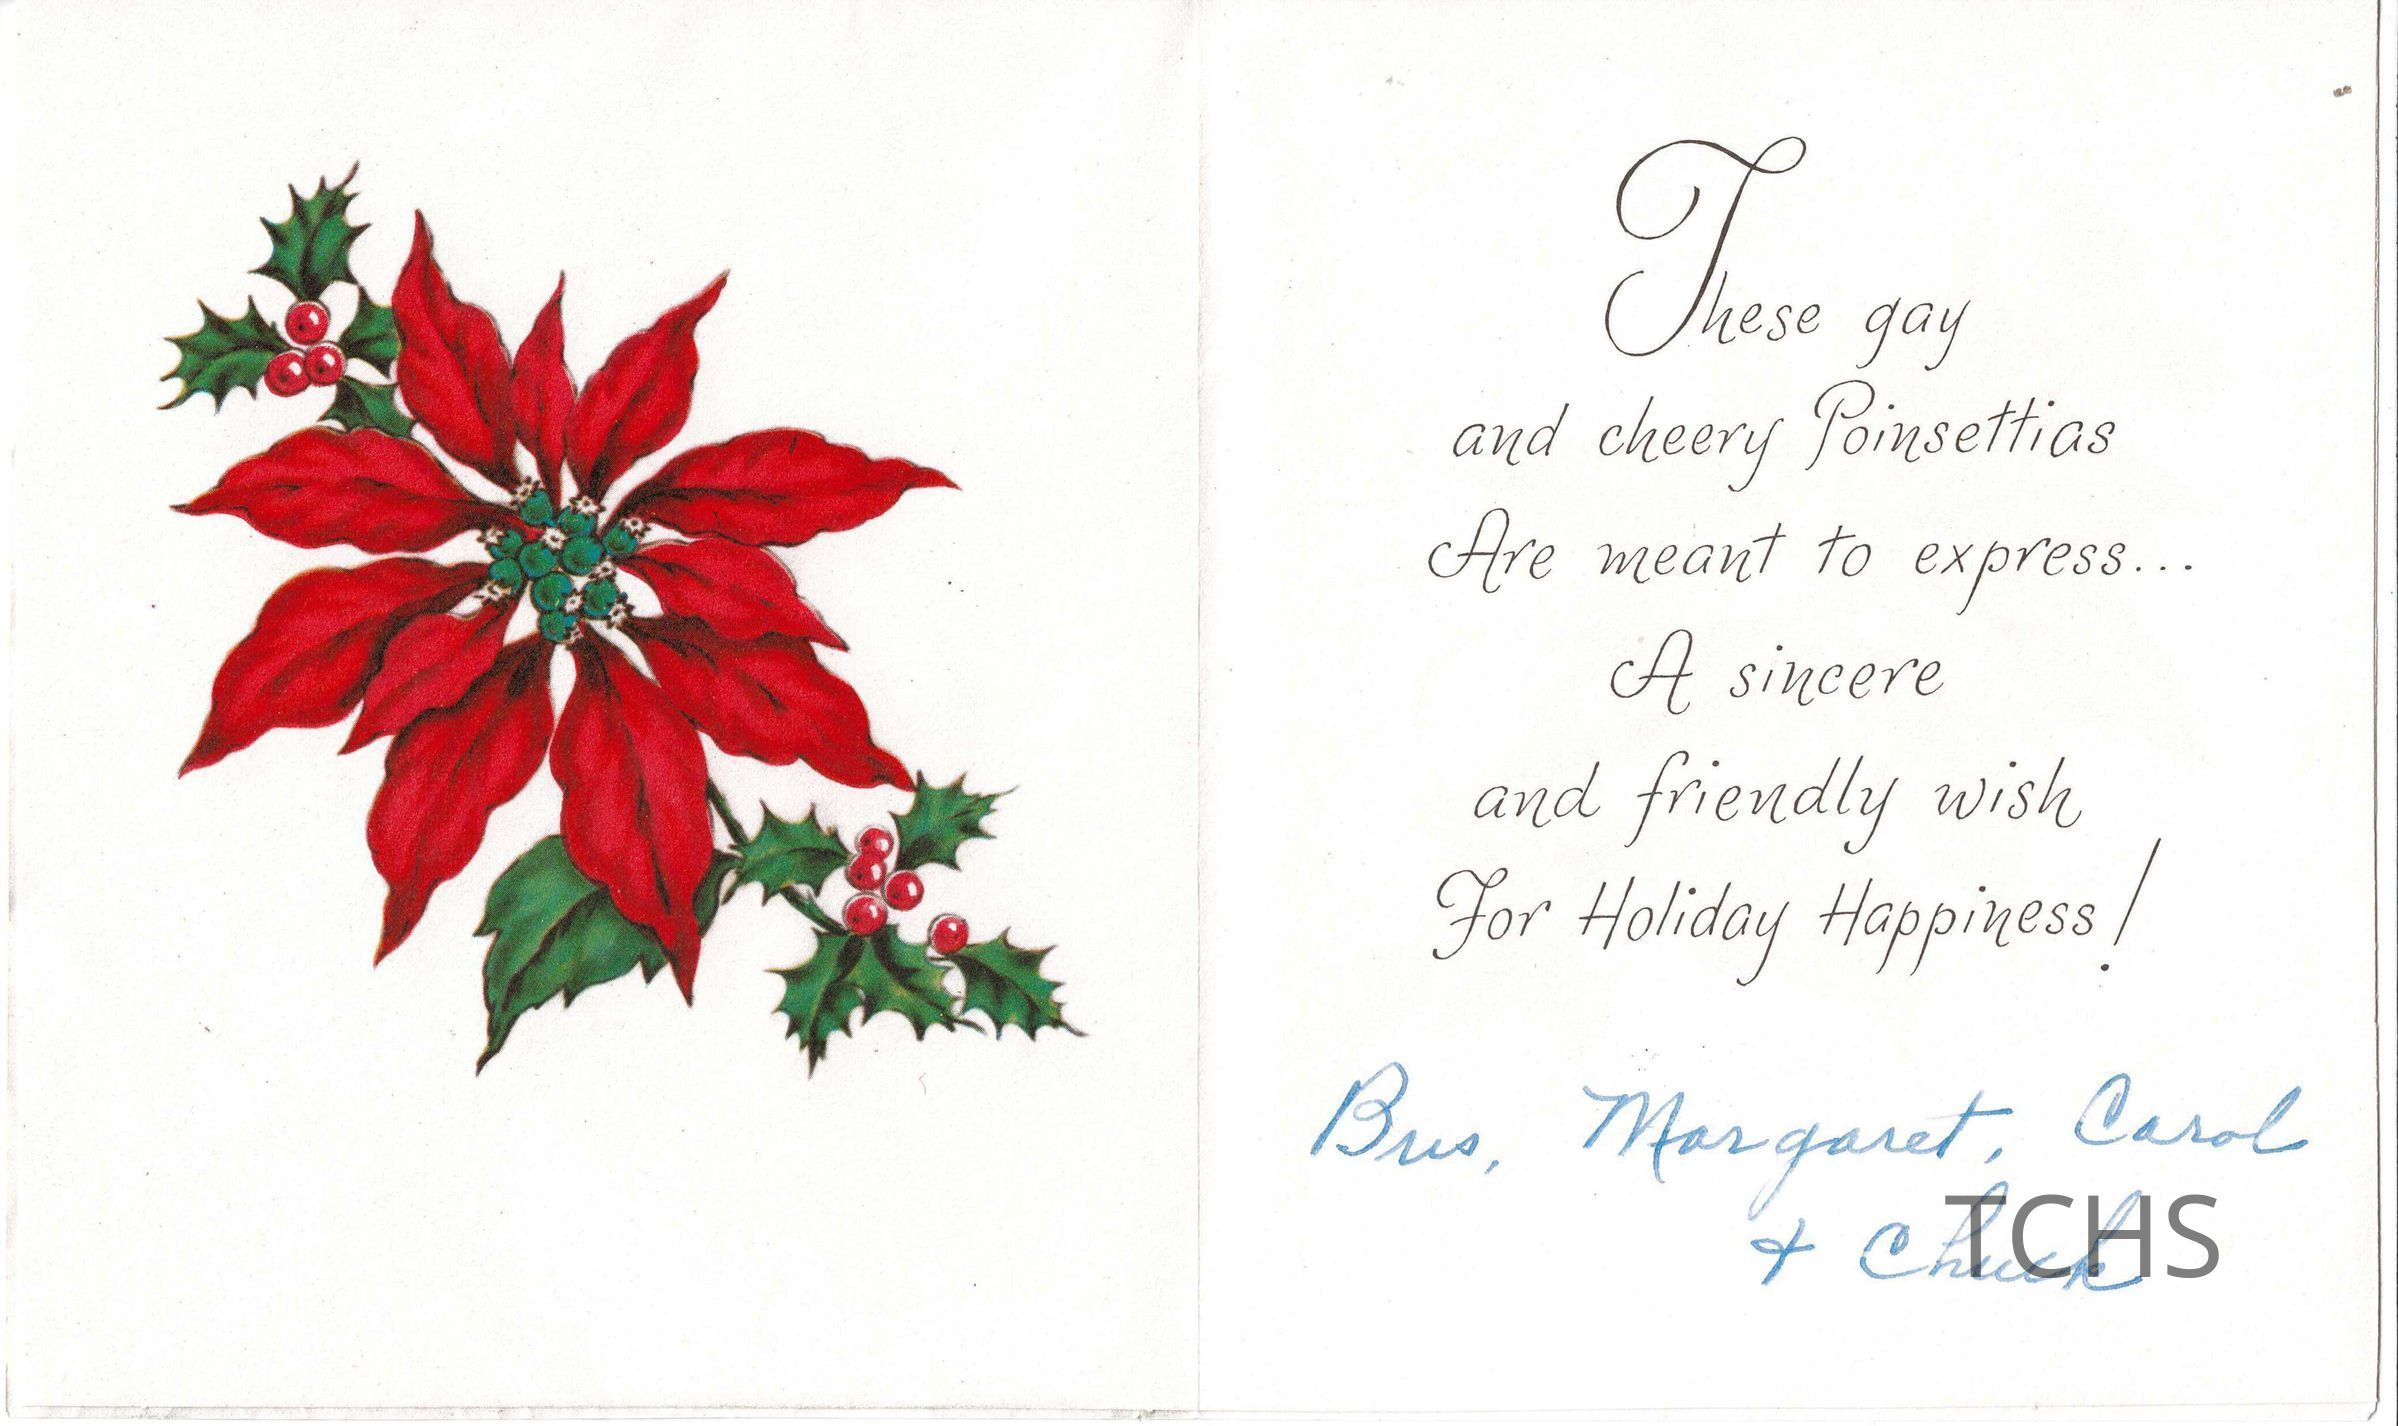 These gay
and cheery Poinsettias
Are meant to express...
A sincere
and friendly wish
For Holiday Happiness!
Margaret, Carol
& Chuck
TCHS